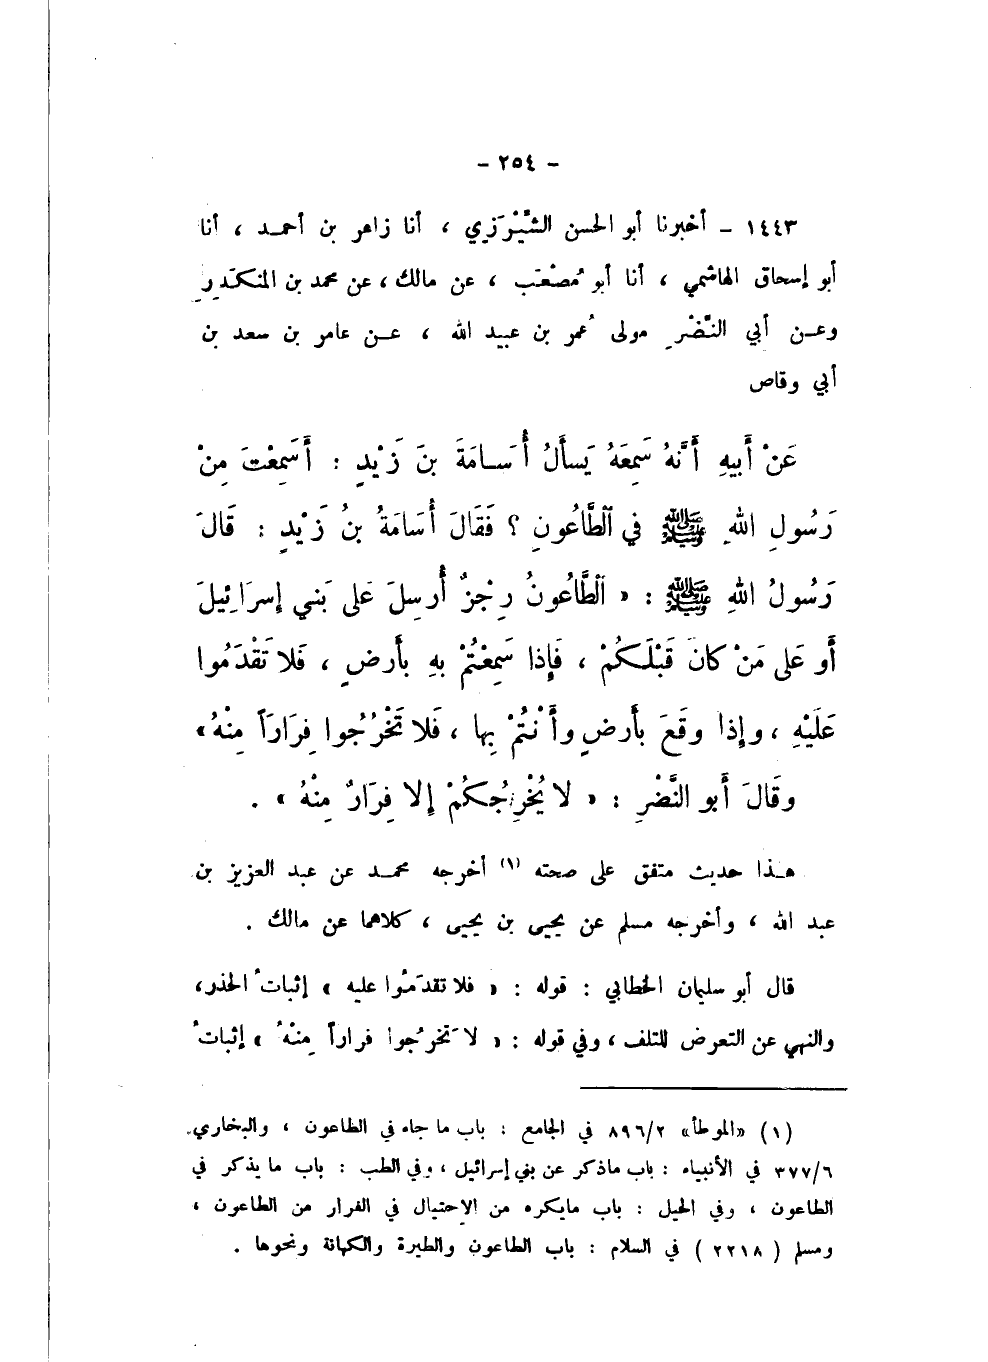 - ٢٥٤ -
١٤٤٣ - أخبرنا أبو الحسن الشَّيْرَزي ، أنا زاهر بن أحمد ، أنا
أبو إسحاق الهاشمي ، أنا أبو مُصْعَب ، عن مالك ، عن محمد بن المنكَدِرِ
وعن أبي النَّضْرِ مولى عُمر بن عبيد الله ، عن عامر بن سعد بن
أبي وقاص
عَنْ أَبيهِ أَنَّهُ سَمِعَهُ يَسأَلُ أُسَامَةَ بنَ زَيْدٍ : أَسَمِعْتَ مِنْ
رَسُولِ اللهِ ﷺ في ٱلطَّاعُونِ ؟ فَقَالَ أُسَامَةُ بنُ زَيْدٍ : قَالَ
رَسُولُ اللهِ ﷺ : « ٱلطَّاعُونُ رِجْزٌ أُرسِلَ عَلى بَني إِسرَائِيلَ
أَو عَلى مَنْ كانَ قَبْلَكُمْ ، فَإِذا سَمِعْتُمْ بهِ بأَرضٍ ، فَلا تَقْدَمُوا
عَلَيْهِ ، وإِذا وقَعَ بأَرضٍ وأَنْتُمْ بِها ، فَلا تَخْرُجُوا فِرَارَاً مِنْهُ »
وقَالَ أَبو النَّضْرِ : « لا يُخْرِجُكُمْ إِلا فِرَارٌ مِنْهُ » .
هذا حديث متفق على صحته (١) أخرجه محمد عن عبد العزيز بن
عبد الله ، وأخرجه مسلم عن يحيى بن يحيى ، كلاهما عن مالك .
قال أبو سليمان الخطابي : قوله : « فلا تقدَمُوا عليه » إثباتُ الحذر ،
والنهي عن التعرض للتلف ، وفي قوله : « لا تَخرُجوا فراراً مِنْهُ » إثباتُ
(١) «الموطأ» ٨٩٦/٢ في الجامع : باب ما جاء في الطاعون ، والبخاري
٣٧٧/٦ في الأنبياء : باب ماذكر عن بني إسرائيل ، وفي الطب : باب ما يذكر في
الطاعون ، وفي الحيل : باب مايكره من الإحتيال في الفرار من الطاعون ،
ومسلم ( ٢٢١٨ ) في السلام : باب الطاعون والطيرة والكهانة ونحوها .